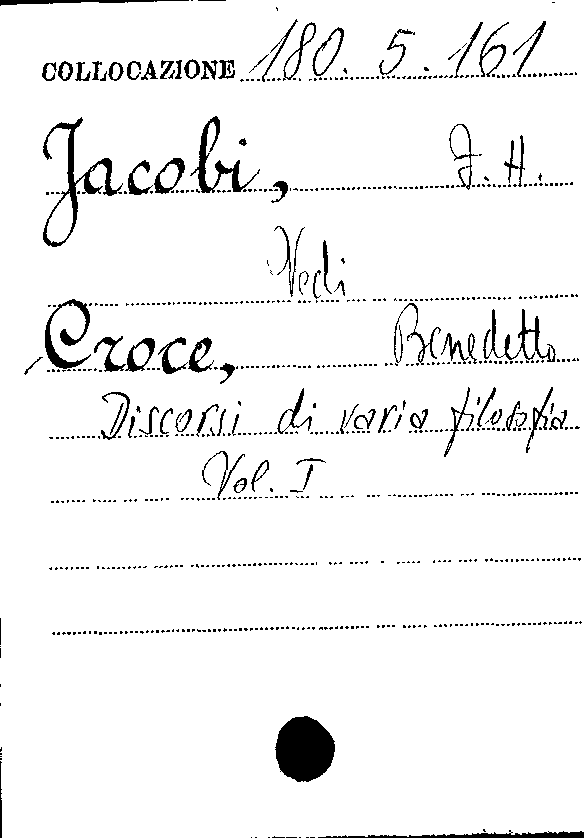 COLLOCAZIONE 180. 5. 161
Jacobi, F. H.
Vedi
Croce, Benedetto
Discorsi di varia filosofia
Vol. I